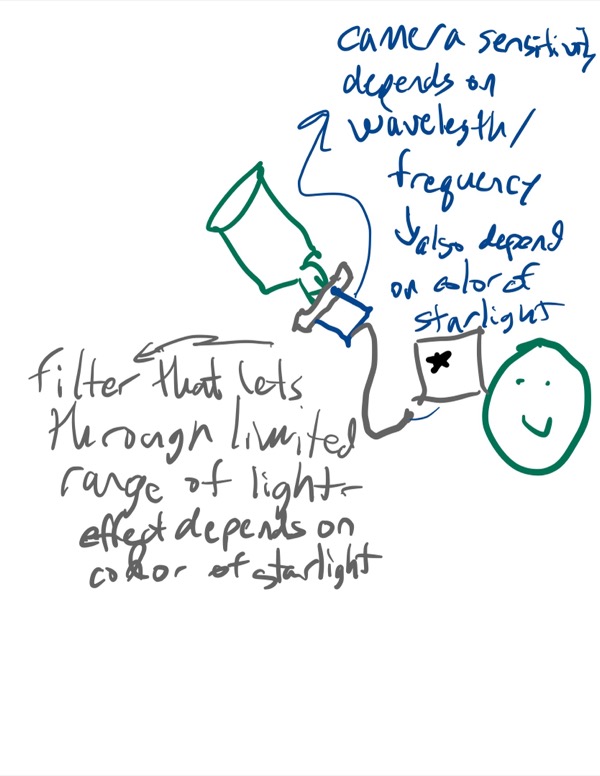 camera sensitivity
depends on
wavelength/
frequency
also depend
on color of
starlight
filter that lets
through limited
range of light-
effect depends on
color of starlight